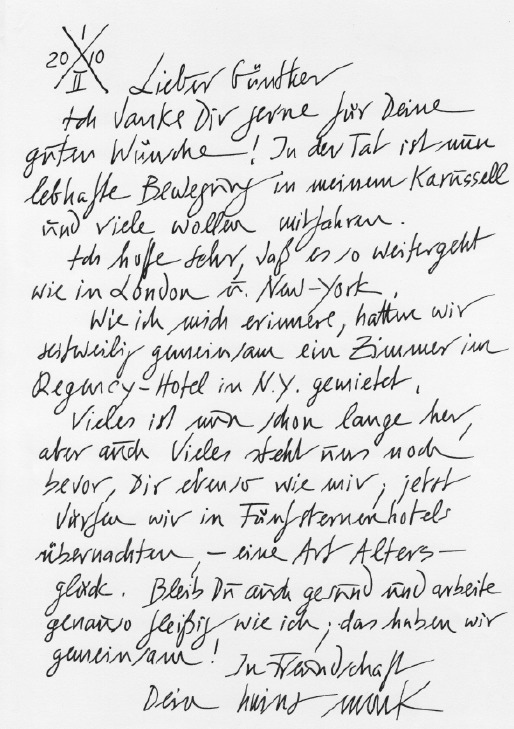 20 1 10
II
Lieber Günther
Ich danke Dir gerne für Deine
guten Wünsche! In der Tat ist nun
lebhafte Bewegung in meinem Karussell
und viele wollen mitfahren.
Ich hoffe sehr, daß es so weitergeht
wie in London u. New-York.
Wie ich mich erinnere, hatten wir
seitweilig gemeinsam ein Zimmer im
Regency-Hotel in N.Y. gemietet.
Vieles ist nun schon lange her,
aber auch Vieles steht uns noch
bevor, Dir ebenso wie mir; jetzt
dürfen wir in Fünfsternenhotels
übernachten, – eine Art Alters-
glück. Bleib Du auch gesund und arbeite
genauso fleißig wie ich; das haben wir
gemeinsam! In Freundschaft
Dein heinz mack